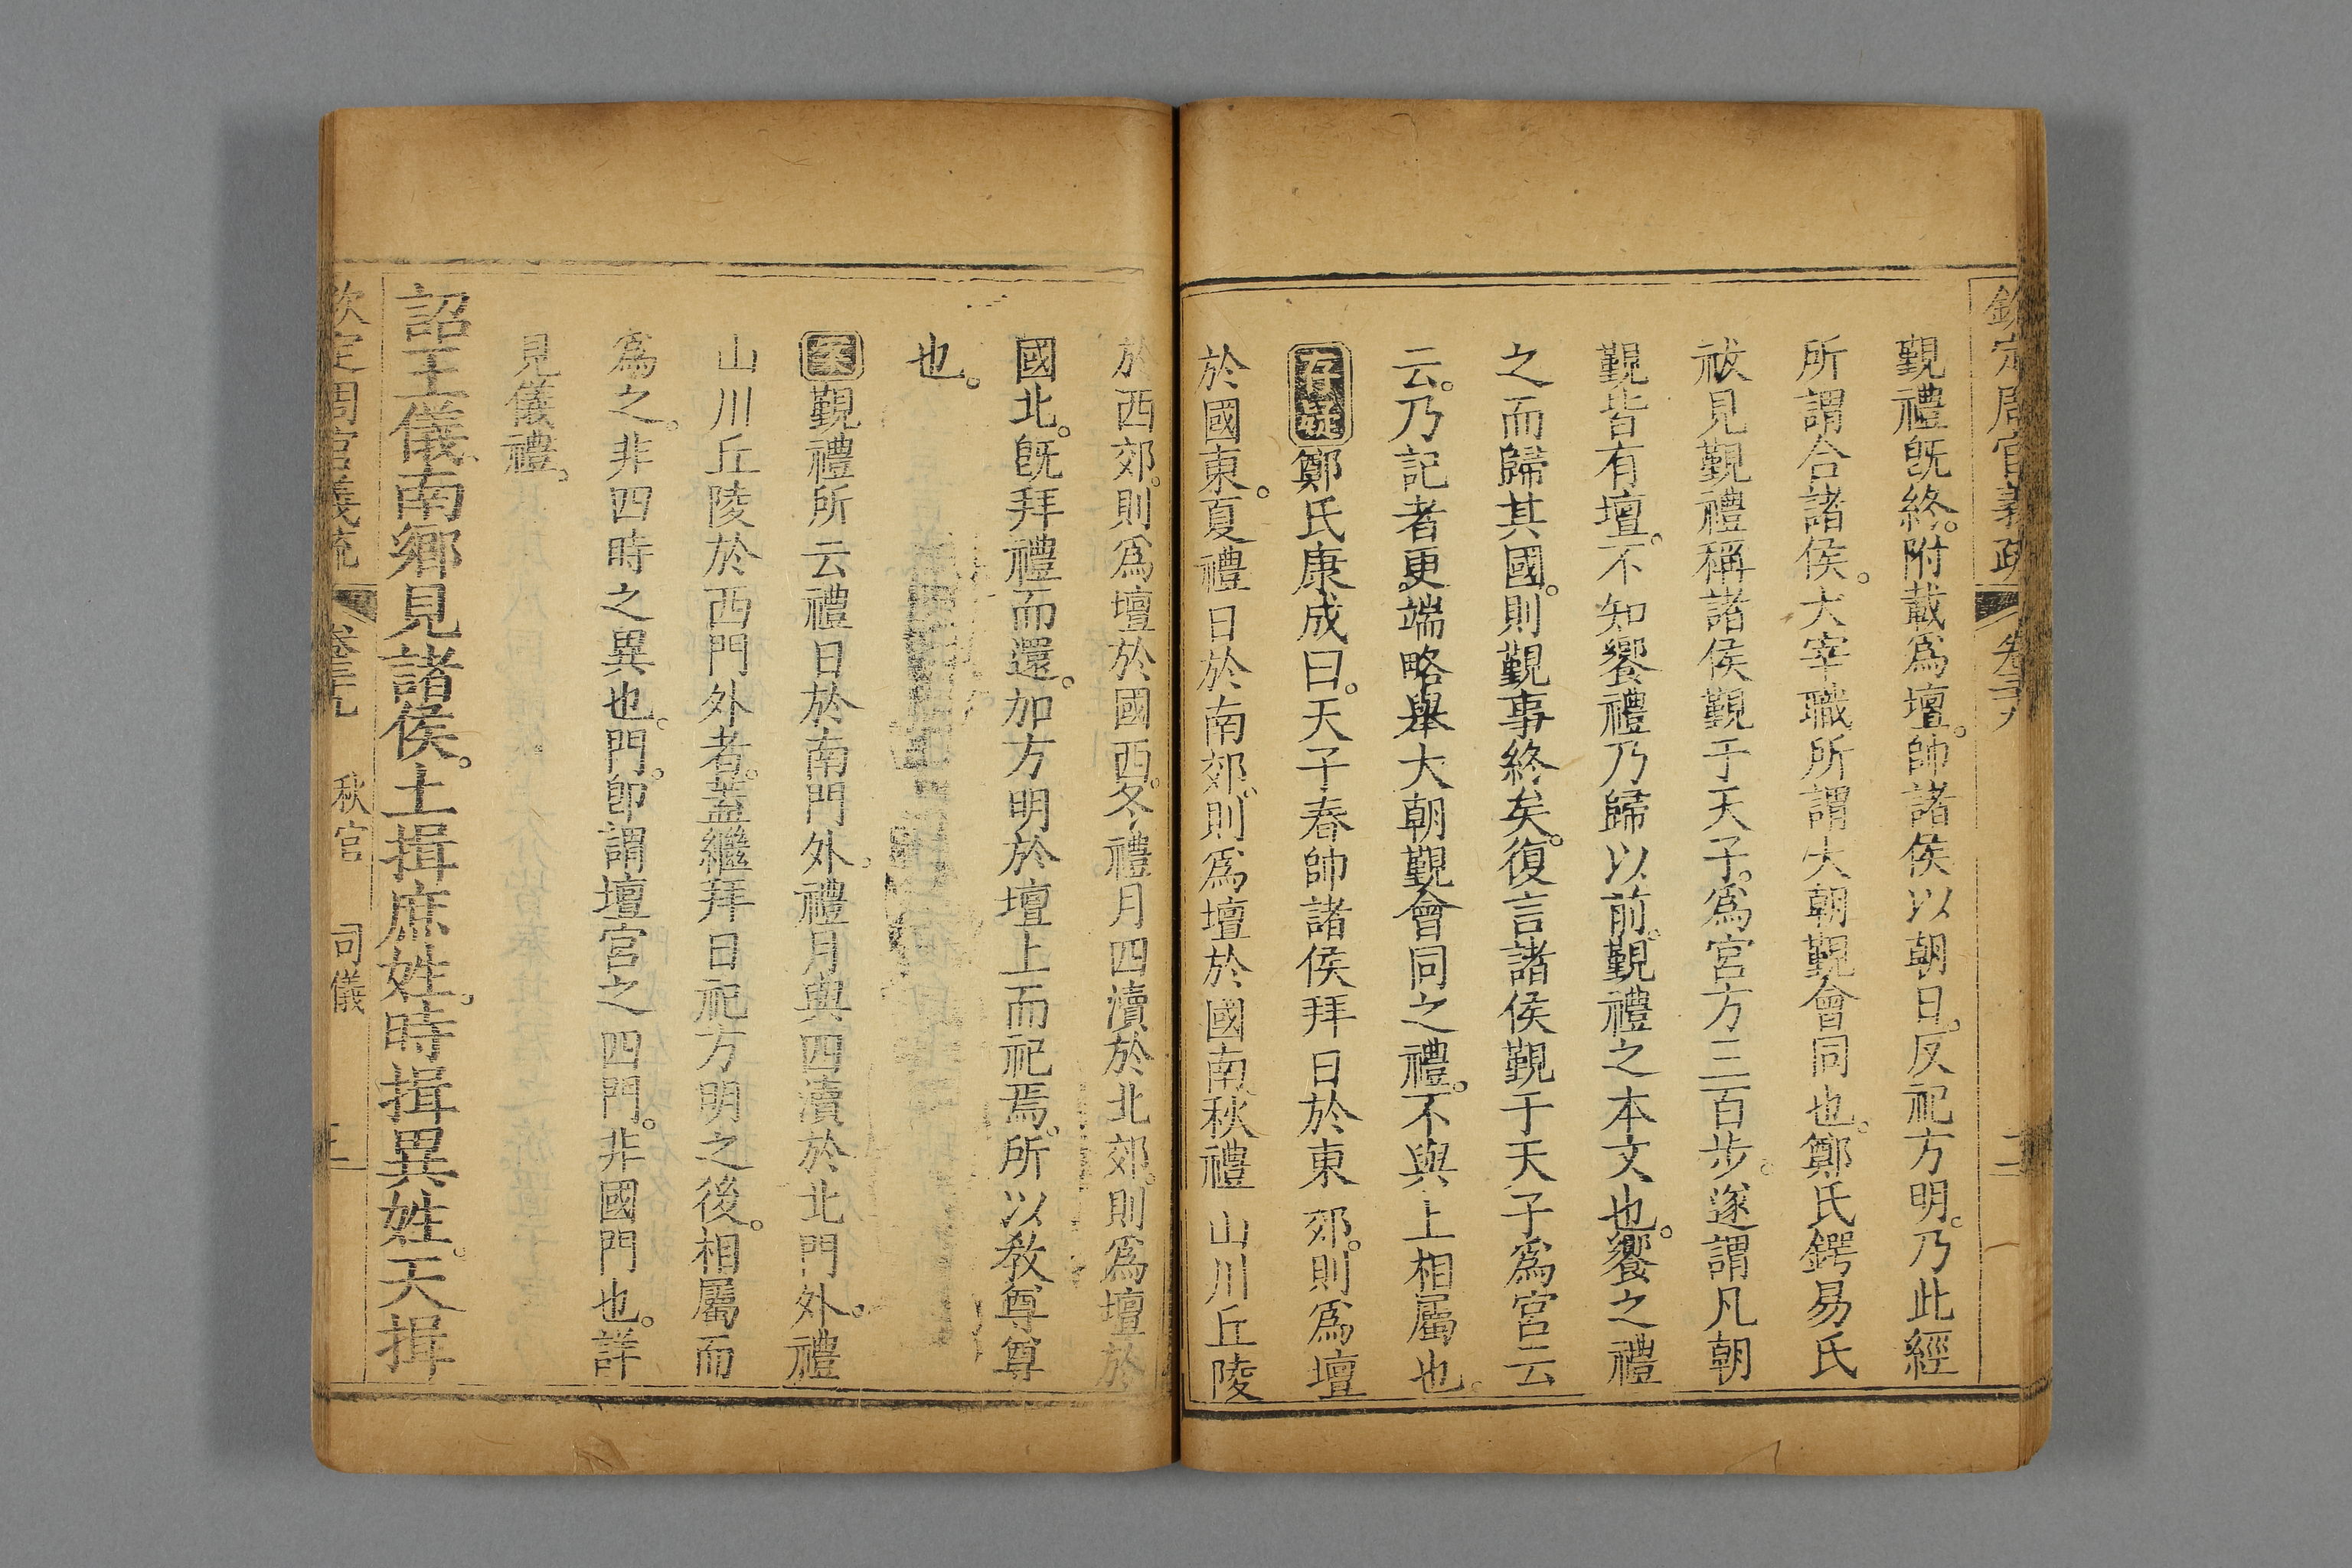 欽定周官義疏 卷三十九 二
覲禮旣終。附載爲壇。帥諸侯以朝日。反祀方明。乃此經
所謂合諸侯。大宰職所謂大朝覲會同也。鄭氏鍔易氏
祓見覲禮稱諸侯覲于天子。爲宮方三百步。遂謂凡朝
覲皆有壇。不知饗禮乃歸以前。覲禮之本文也。饗之禮
之而歸其國。則覲事終矣。復言諸侯覲于天子爲宮云
云。乃記者更端略舉大朝覲會同之禮。不與上相屬也。
存疑鄭氏康成曰。天子春帥諸侯拜日於東郊。則爲壇
於國東。夏禮日於南郊。則爲壇於國南。秋禮山川丘陵
於西郊。則爲壇於國西。冬禮月四瀆於北郊。則爲壇於
國北。旣拜禮而還。加方明於壇上而祀焉。所以教尊尊
也。
案覲禮所云禮日於南門外。禮月與四瀆於北門外。禮
山川丘陵於西門外者。蓋繼拜日祀方明之後。相屬而
爲之。非四時之異也。門。卽謂壇宮之四門。非國門也。詳
見儀禮。
詔王儀。南鄉見諸侯。土揖庶姓。時揖異姓。天揖
欽定周官義疏 卷三十九 秋官 司儀